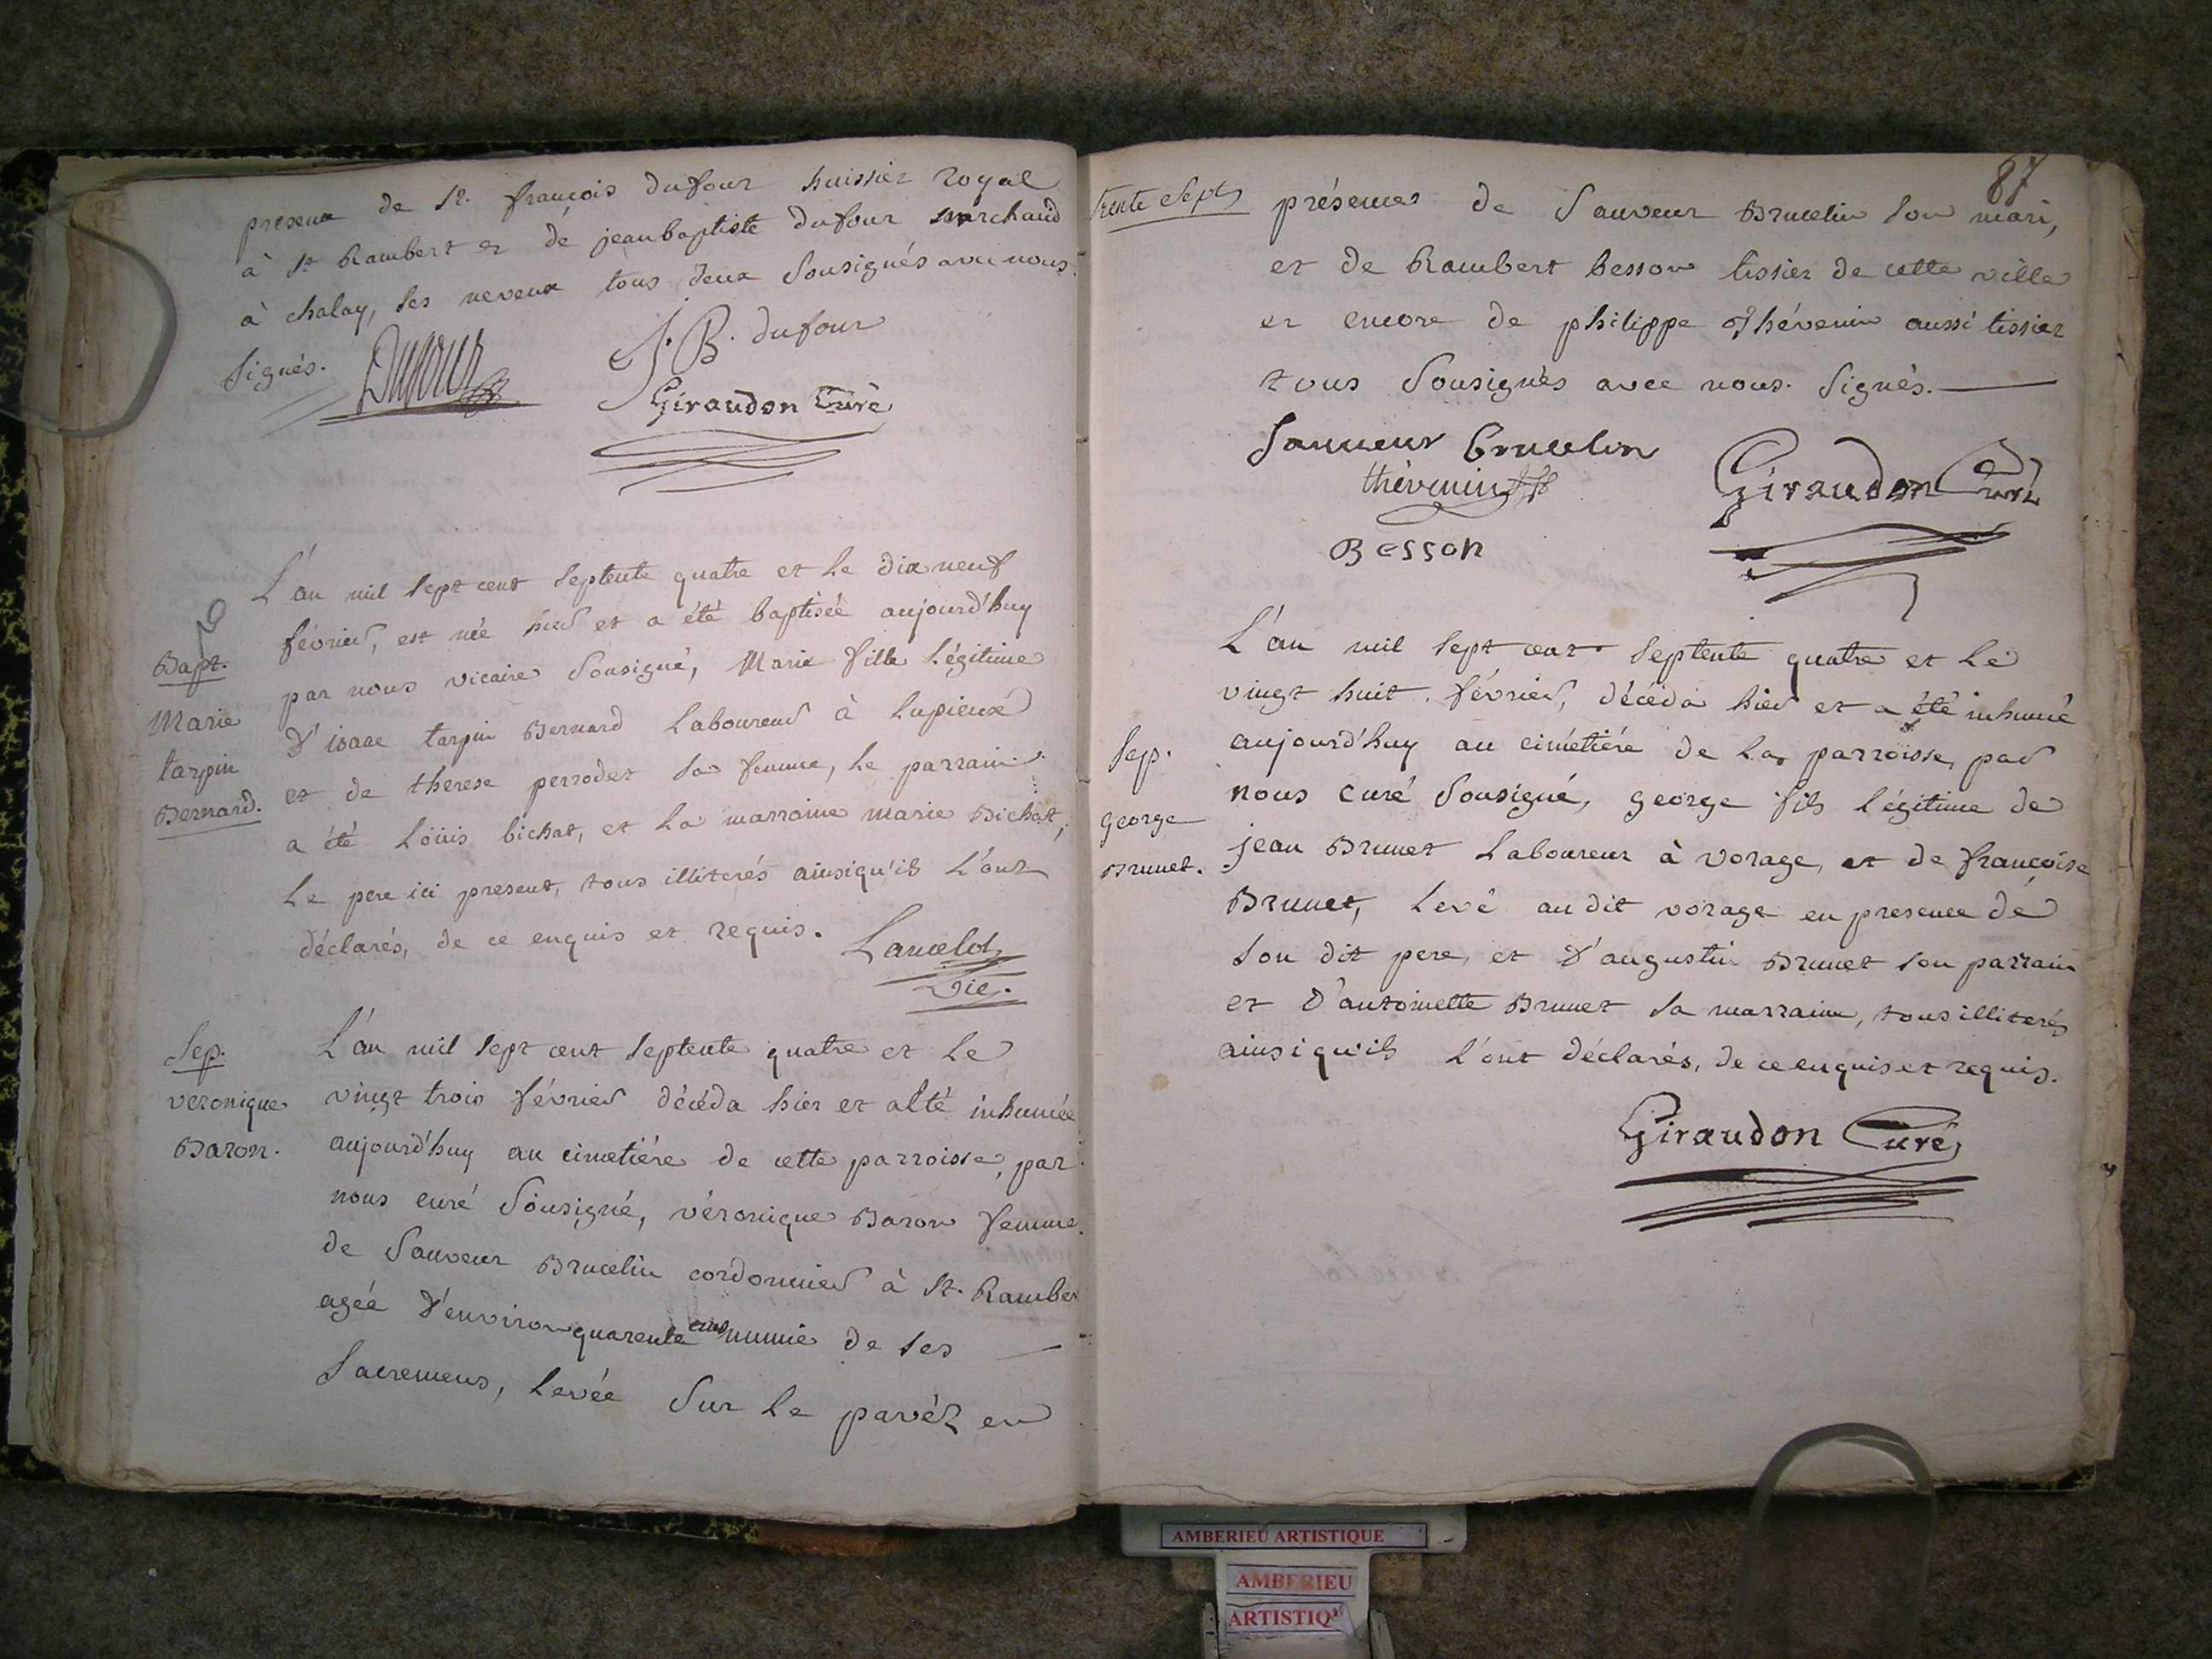 presence de Sr. françois dufour huissier royal
à St Rambert et de jeanbaptiste dufour marchand
à chaley, ses neveux tous deux Sousignés avec nous.
Signés. Dufour J. B. dufour
Giraudon Curé
Bapt.
Marie
tarpin
Bernard.
L'an mil sept cent septente quatre et le dix neuf
février, est née hier et a été baptisée aujourd'huy
par nous vicaire Sousigné, Marie fille légitime
d'isaac tarpin Bernard Laboureur à Lupieux
et de therese perrodet sa femme, le parrain
a été Loüis bichat, et la marraine marie Bichat,
le pere ici present, tous illiterés ainsiqu'ils l'ont
déclarés, de ce enquis et requis. Lancelot
Vic.
Sep.
veronique
Baron.
L'an mil sept cent septente quatre et le
vingt trois février décéda hier et a été inhumée
aujourd'huy au cimetiére de cette parroisse, par
nous curé Sousigné, véronique Baron femme
de Sauveur Brucelin cordonnier à St. Rambert
agée d'environ quarente ans munie de ses
Sacremens, levée sur le pavéz en
87
trente Sept
présences de Sauveur Brucelin son mari,
et de Rambert besson tissier de cette ville
et encore de philippe Thévenin aussi tissier
tous Sousignés avec nous. Signés.
Sauveur Brucelin
thévenin
Giraudon Curé
Besson
Sep.
George
Brunet.
L'an mil sept cent septente quatre et le
vingt huit février, décéda hier et a été inhumé
aujourd'huy au cimétiére de la parroisse, par
nous curé Sousigné, george fils légitime de
jean Brunet Laboureur à vorage, et de françoise
Brunet, levé au dit vorage en presence de
son dit pere, et d'augustin Brunet son parrain
et d'antoinette Brunet sa marraine, tous illiterés
ainsi qu'ils l'ont déclarés, de ce enquis et requis.
Giraudon Curé
AMBERIEU ARTISTIQUE
AMBERIEU
ARTISTIQ